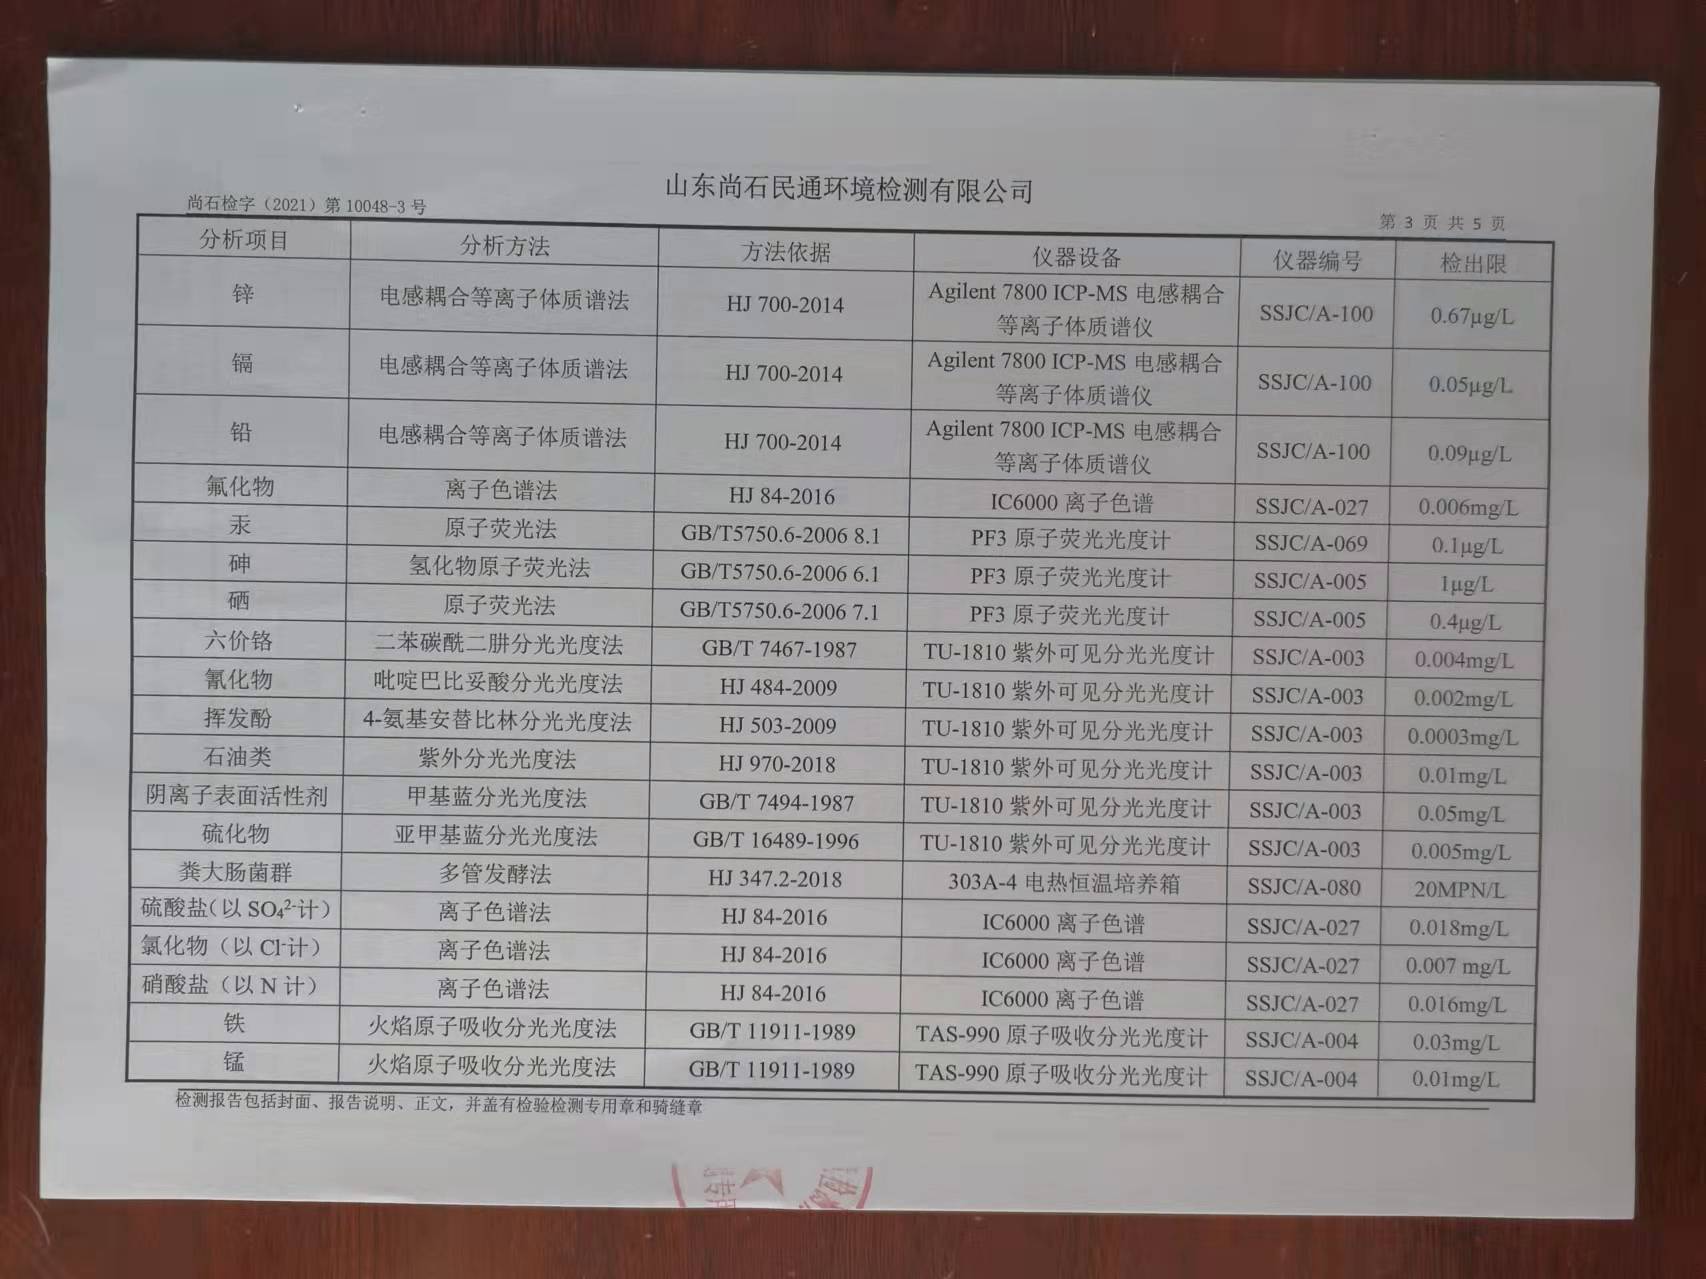 山东尚石民通环境检测有限公司
尚石检字（2021）第 10048-3 号
第 3 页 共 5 页
分析项目 分析方法 方法依据 仪器设备 仪器编号 检出限
锌 电感耦合等离子体质谱法 HJ 700-2014 Agilent 7800 ICP-MS 电感耦合等离子体质谱仪 SSJC/A-100 0.67μg/L
镉 电感耦合等离子体质谱法 HJ 700-2014 Agilent 7800 ICP-MS 电感耦合等离子体质谱仪 SSJC/A-100 0.05μg/L
铅 电感耦合等离子体质谱法 HJ 700-2014 Agilent 7800 ICP-MS 电感耦合等离子体质谱仪 SSJC/A-100 0.09μg/L
氟化物 离子色谱法 HJ 84-2016 IC6000 离子色谱 SSJC/A-027 0.006mg/L
汞 原子荧光法 GB/T5750.6-2006 8.1 PF3 原子荧光光度计 SSJC/A-069 0.1μg/L
砷 氢化物原子荧光法 GB/T5750.6-2006 6.1 PF3 原子荧光光度计 SSJC/A-005 1μg/L
硒 原子荧光法 GB/T5750.6-2006 7.1 PF3 原子荧光光度计 SSJC/A-005 0.4μg/L
六价铬 二苯碳酰二肼分光光度法 GB/T 7467-1987 TU-1810 紫外可见分光光度计 SSJC/A-003 0.004mg/L
氰化物 吡啶巴比妥酸分光光度法 HJ 484-2009 TU-1810 紫外可见分光光度计 SSJC/A-003 0.002mg/L
挥发酚 4-氨基安替比林分光光度法 HJ 503-2009 TU-1810 紫外可见分光光度计 SSJC/A-003 0.0003mg/L
石油类 紫外分光光度法 HJ 970-2018 TU-1810 紫外可见分光光度计 SSJC/A-003 0.01mg/L
阴离子表面活性剂 甲基蓝分光光度法 GB/T 7494-1987 TU-1810 紫外可见分光光度计 SSJC/A-003 0.05mg/L
硫化物 亚甲基蓝分光光度法 GB/T 16489-1996 TU-1810 紫外可见分光光度计 SSJC/A-003 0.005mg/L
粪大肠菌群 多管发酵法 HJ 347.2-2018 303A-4 电热恒温培养箱 SSJC/A-080 20MPN/L
硫酸盐（以 SO₄²⁻计） 离子色谱法 HJ 84-2016 IC6000 离子色谱 SSJC/A-027 0.018mg/L
氯化物（以 Cl⁻计） 离子色谱法 HJ 84-2016 IC6000 离子色谱 SSJC/A-027 0.007 mg/L
硝酸盐（以 N 计） 离子色谱法 HJ 84-2016 IC6000 离子色谱 SSJC/A-027 0.016mg/L
铁 火焰原子吸收分光光度法 GB/T 11911-1989 TAS-990 原子吸收分光光度计 SSJC/A-004 0.03mg/L
锰 火焰原子吸收分光光度法 GB/T 11911-1989 TAS-990 原子吸收分光光度计 SSJC/A-004 0.01mg/L
检测报告包括封面、报告说明、正文，并盖有检验检测专用章和骑缝章